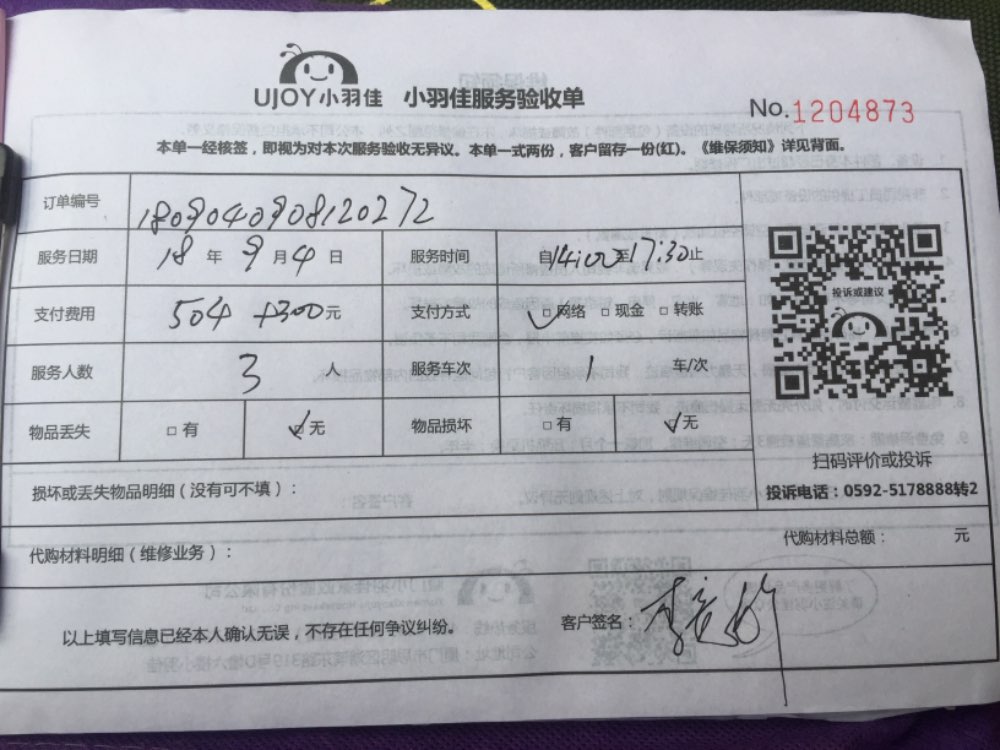 UJOY小羽佳 小羽佳服务验收单
No.1204873
本单一经核签，即视为对本次服务验收无异议。本单一式两份，客户留存一份(红)。《维保须知》详见背面。
订单编号 1809040908120272
服务日期 18 年 9 月 4 日 服务时间 自14:00至17:30止
支付费用 504 +300元 支付方式 ✓□网络 □现金 □转账
服务人数 3 人 服务车次 1 车/次
物品丢失 □有 ✓无 物品损坏 □有 ✓无
投诉或建议
扫码评价或投诉
投诉电话：0592-5178888转2
损坏或丢失物品明细（没有可不填）：
代购材料明细（维修业务）： 代购材料总额： 元
以上填写信息已经本人确认无误，不存在任何争议纠纷。 客户签名：